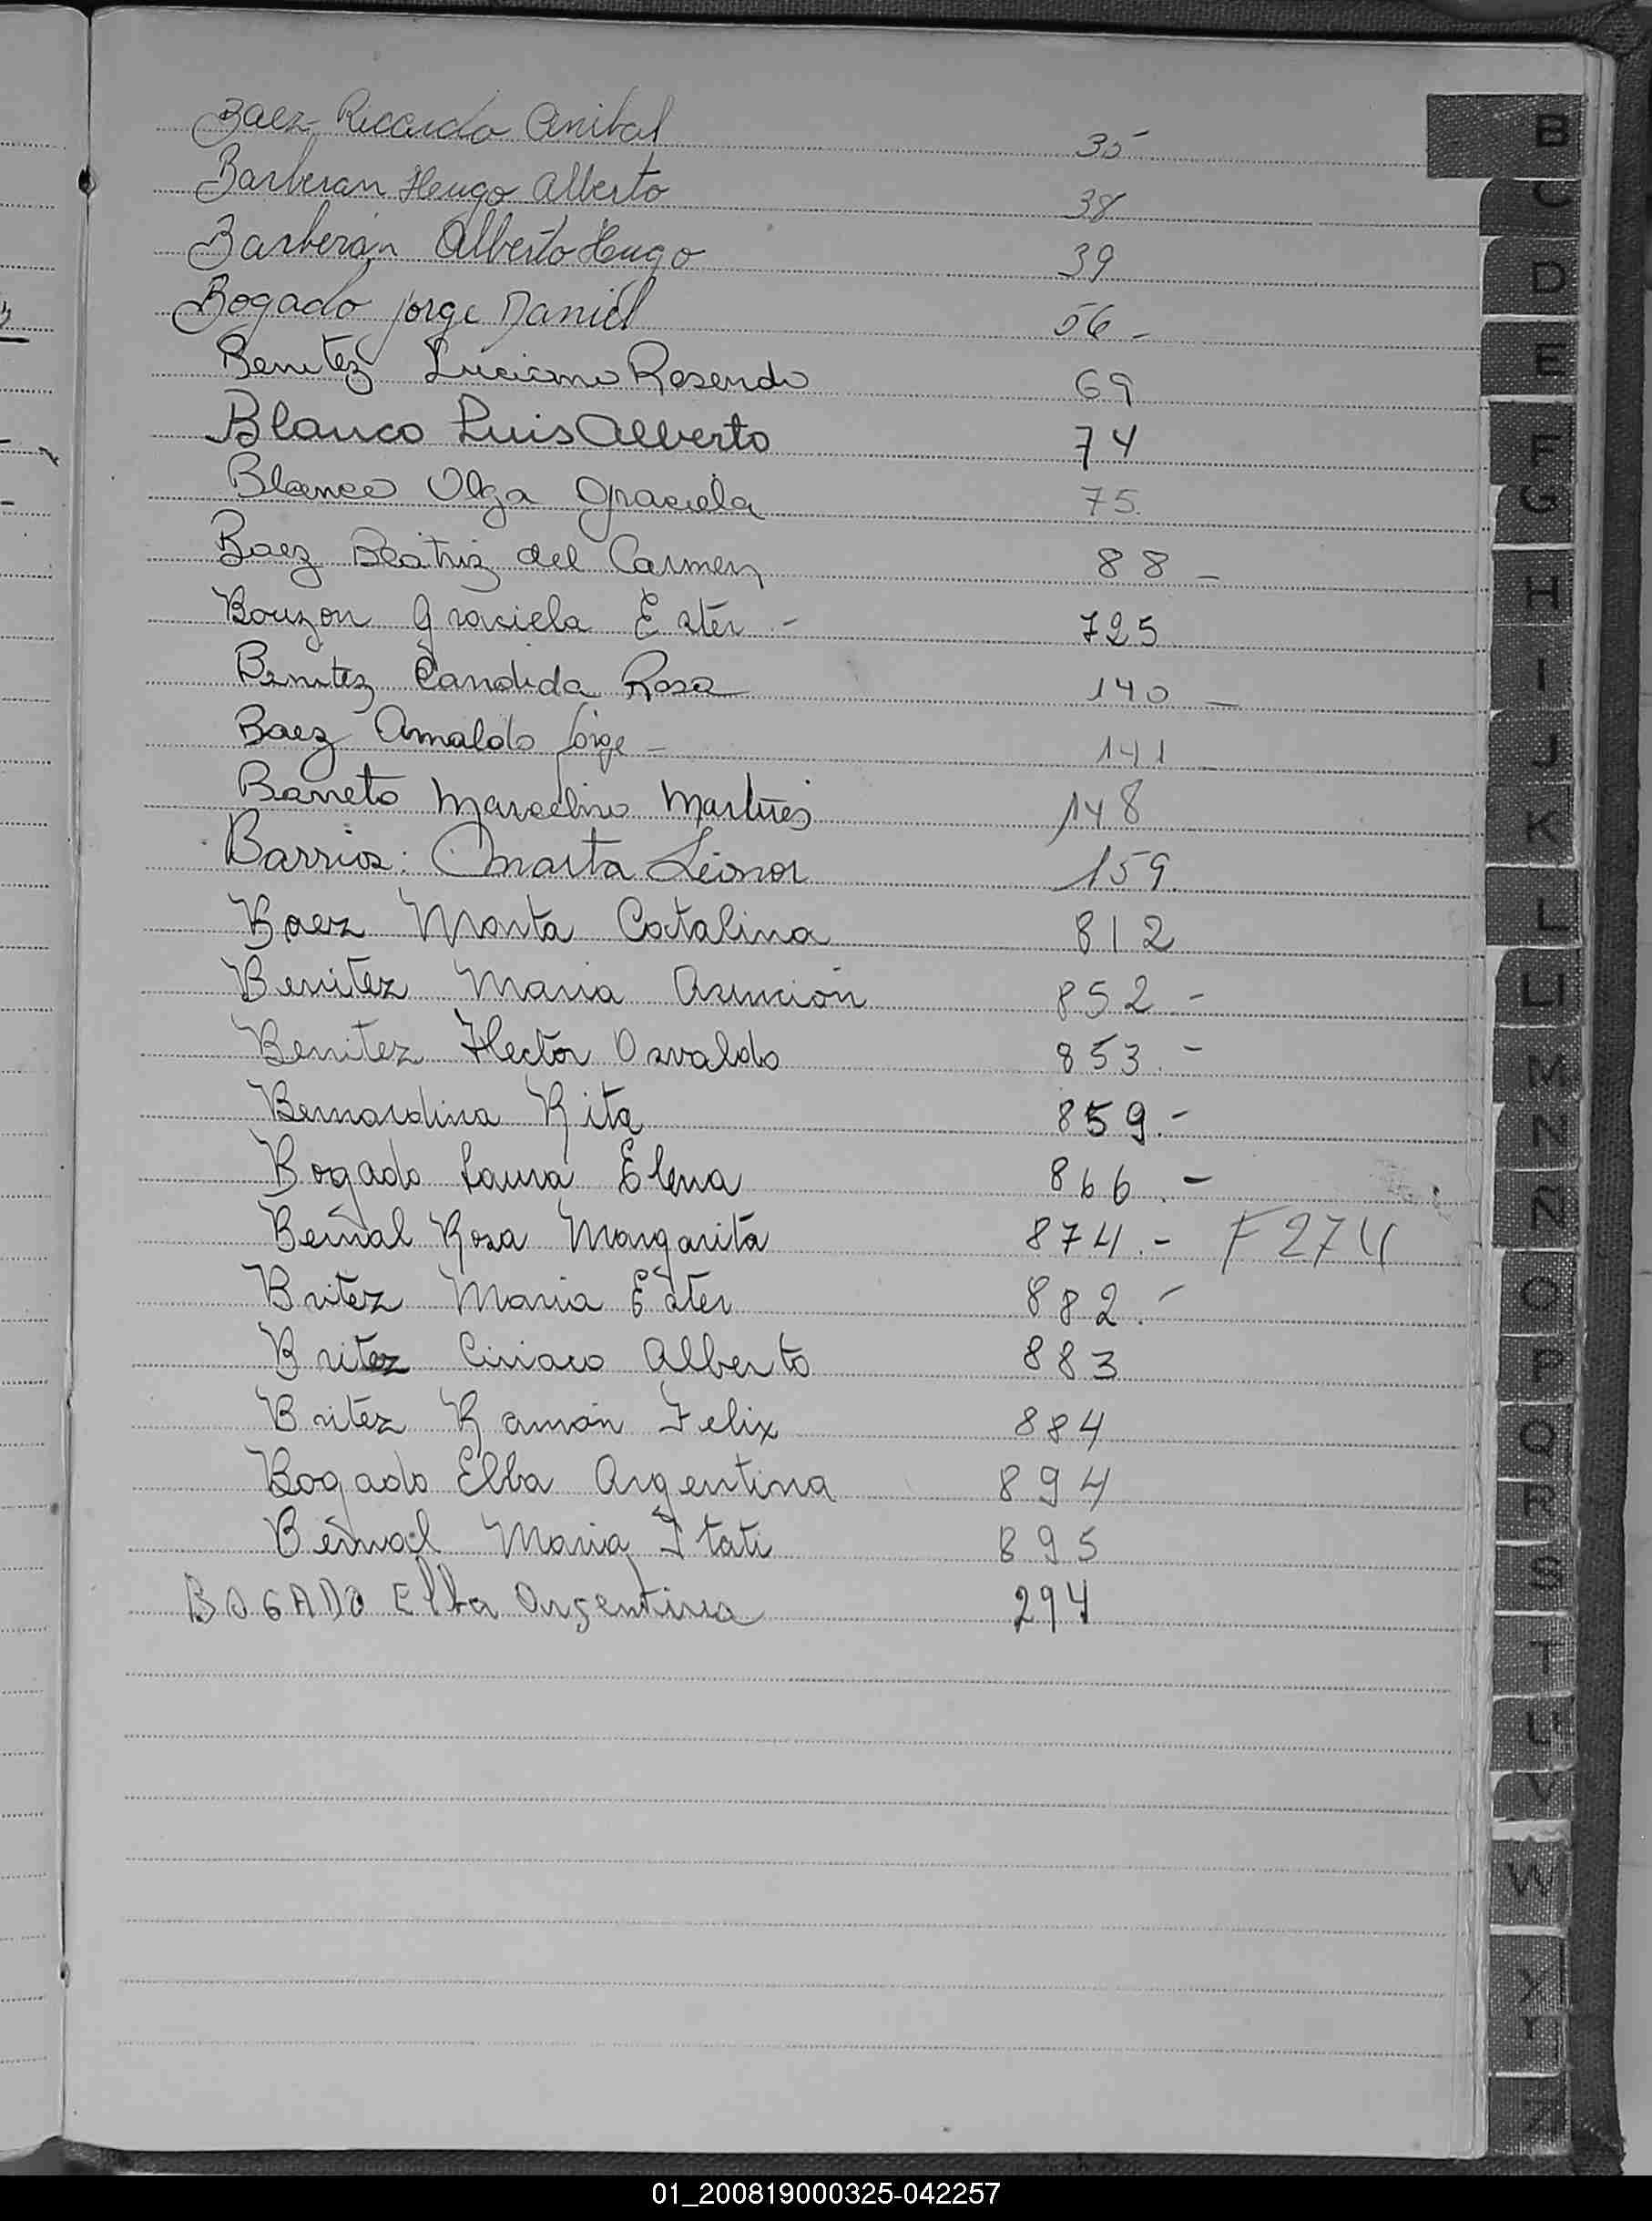 Baez Ricardo Anibal 35
Barberan Hugo Alberto 38
Barberán Alberto Hugo 39
Bogado Jorge Daniel 56 -
Benitez Luciano Rosendo 69
Blanco Luis Alberto 74
Blanco Olga Graciela 75
Baez Beatriz del Carmen 88 -
Bouzon Graciela Ester - 725
Benitez Candida Rosa 140 -
Baez Arnaldo Jorge - 141 -
Barreto Marcelino 148
Barrios: Marta Leonor 159.
Baez Marta Catalina 812
Benitez Maria Asunción 852 -
Benitez Hector Osvaldo 853.-
Bernardina Rita 859.-
Bogado Laura Elena 866.-
Bernal Rosa Margarita 874.- F 274
Britez Maria Ester 882.-
Britez Ciriaco Alberto 883
Britez Ramón Felix 884
Bogado Elba Argentina 894
Bernal Maria Itati 895
BOGADO Elba Argentina 294
B
C
D
E
F
G
H
I
J
K
L
Ll
M
N
Ñ
O
P
Q
R
S
T
U
V
W
X
Y
Z
01_200819000325-042257